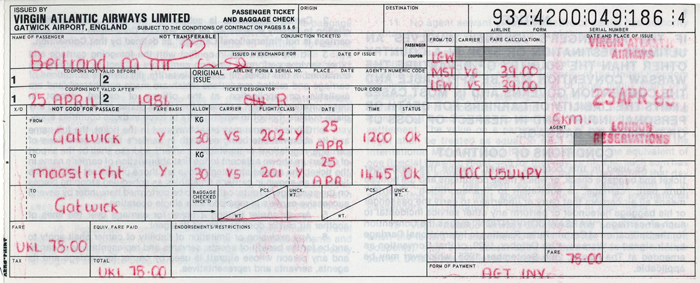 ISSUED BY
VIRGIN ATLANTIC AIRWAYS LIMITED
GATWICK AIRPORT, ENGLAND
PASSENGER TICKET
AND BAGGAGE CHECK
SUBJECT TO THE CONDITIONS OF CONTRACT ON PAGES 5 & 6
ORIGIN
DESTINATION
932:4200:049:186 :4
AIRLINE FORM SERIAL NUMBER
NAME OF PASSENGER
NOT TRANSFERABLE
CONJUNCTION TICKET(S)
PASSENGER
COUPON
FROM/TO CARRIER FARE CALCULATION
DATE AND PLACE OF ISSUE
Bertrand m mr
ISSUED IN EXCHANGE FOR
DATE OF ISSUE
COUPONS NOT VALID BEFORE
1 2
ORIGINAL
ISSUE
AIRLINE FORM & SERIAL NO. PLACE DATE AGENT'S NUMERIC CODE
COUPONS NOT VALID AFTER
TICKET DESIGNATOR
TOUR CODE
1 25 APRIL 2 1981
R
X/O NOT GOOD FOR PASSAGE FARE BASIS ALLOW CARRIER FLIGHT/CLASS DATE TIME STATUS
FROM
Gatwick Y KG 30 VS 202 Y 25 APR 1200 OK
TO
maastricht Y KG 30 VS 201 Y 25 APR 1445 OK
TO
Gatwick
BAGGAGE
CHECKED
UNCK'D
PCS. UNCK.
WT. WT.
PCS. UNCK.
WT. WT.
LGW
MST VS 39.00
LGW VS 39.00
VIRGIN ATLANTIC
AIRWAYS
23 APR 85
AGENT
LONDON
RESERVATIONS
LOC U5U4PV
FARE
UKL 78.00
EQUIV. FARE PAID
ENDORSEMENTS/RESTRICTIONS
TAX
TOTAL
UKL 78.00
FARE
78.00
FORM OF PAYMENT
AGT INV.